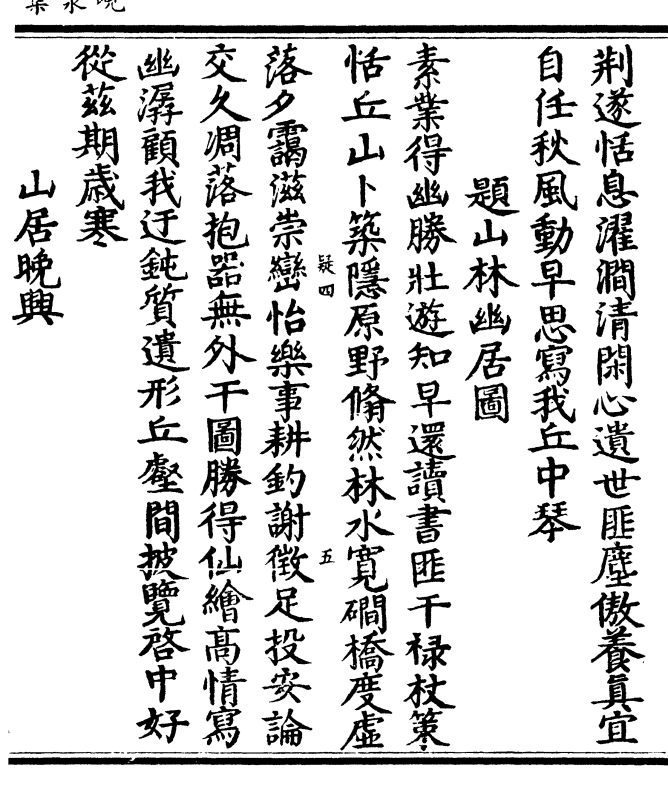 荆遂恬息濯澗清閑心遺世匪塵傲養真宜
自任秋風動早思寫我丘中琴
題山林幽居圖
素業得幽勝壯遊知早還讀書匪干祿杖策
恬丘山卜築隱原野翛然林水寬磵橋度虛
落夕靄滋崇巒怡樂事耕釣謝徵足投安論
疑四
五
交久凋落抱器無外干圖勝得仙繪高情寫
幽潺顧我迂鈍質遺形丘壑間披覽啓中好
從茲期歲寒
山居晚興